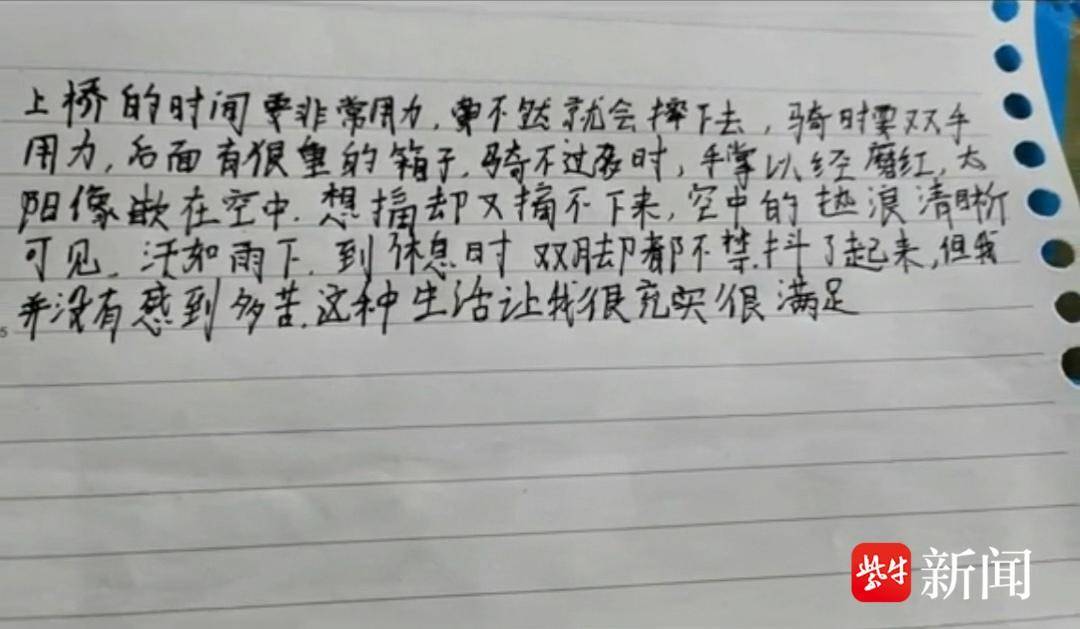 上桥的时间要非常用力,要不然就会摔下去,骑时要双手
用力,后面有很重的箱子,骑不过多时,手掌以经磨红,太
阳像嵌在空中.想摘却又摘不下来,空中的热浪清晰
可见.汗如雨下.到休息时双脚却都不禁抖了起来,但我
并没有感到多苦.这种生活让我很充实很满足
5
紫牛新闻